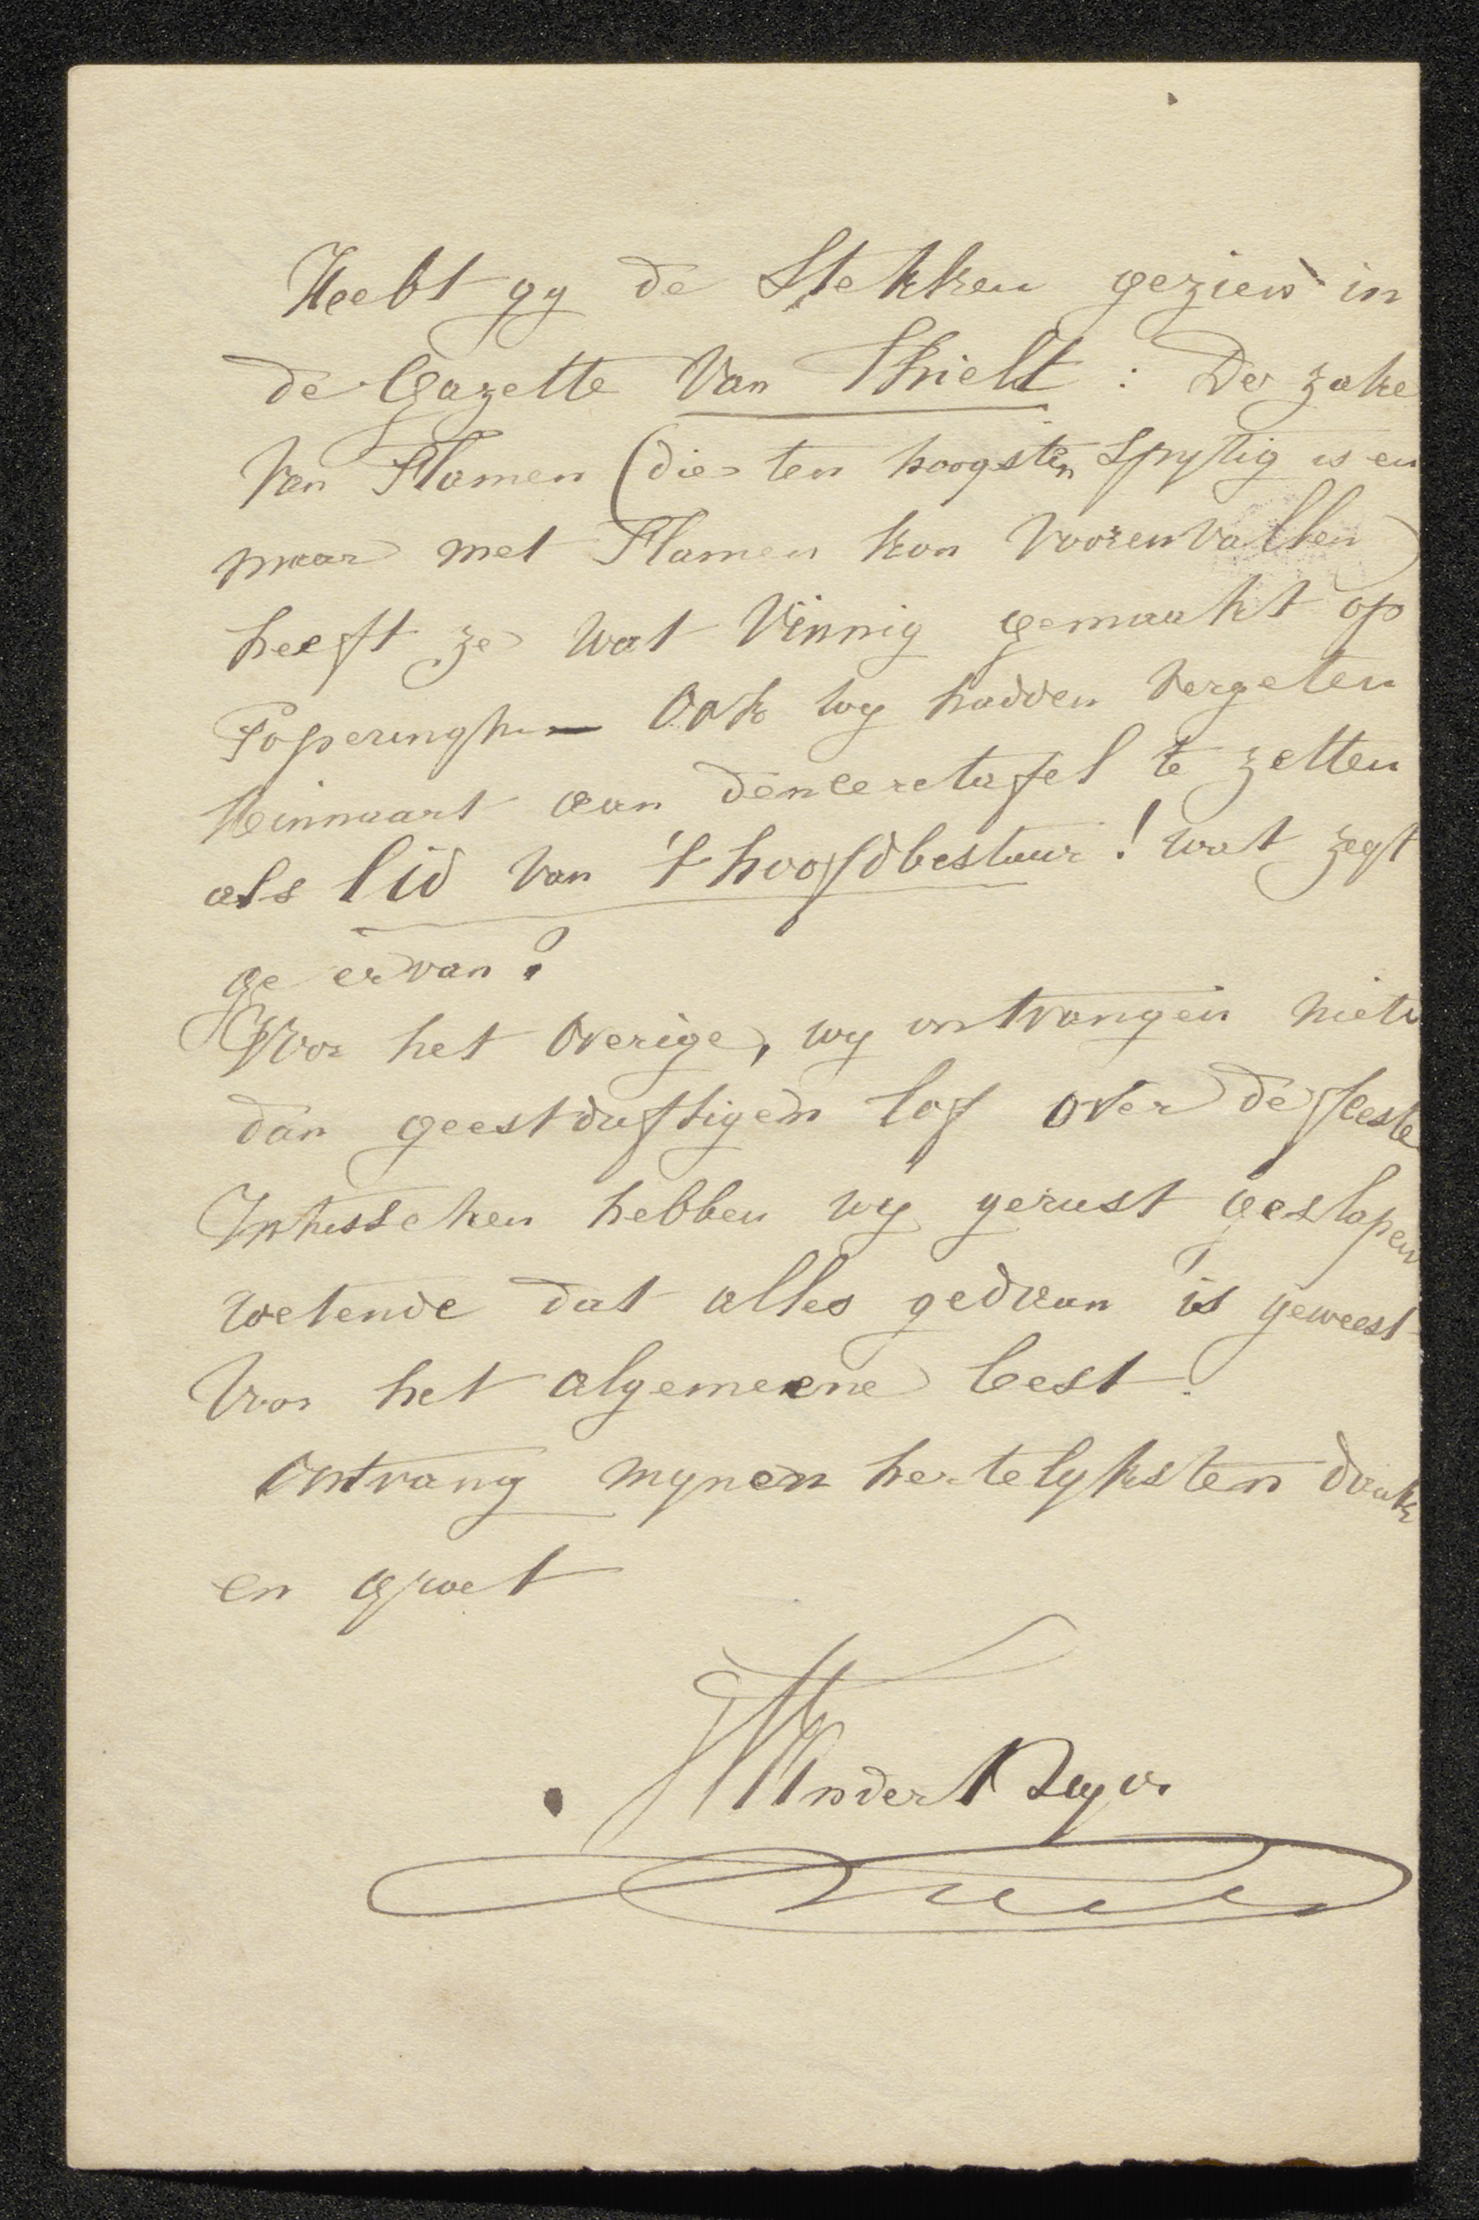 Heebt gy de Stekken gezien in
de Gazette Van Thielt : De zake
Van Flamen (die ten hoogsten spytig is en
maar met Flamen kon voorenvallen)
heeft ze wat vinnig gemaakt op
Poperinghe — Ook wy hadden vergeten
aan den eeretafel te zetten
als lid van 't hoofdbestuur ! wat zegt
ge ervan ?
Voor het overige, wy ontvangen niets
dan geestdriftigen lof over de feeste
Intusschen hebben wy gerust geslapen
wetende dat alles gedaan is geweest
Voor het algemeene best.
Ontvang mynen hertelyksten dank
en groet